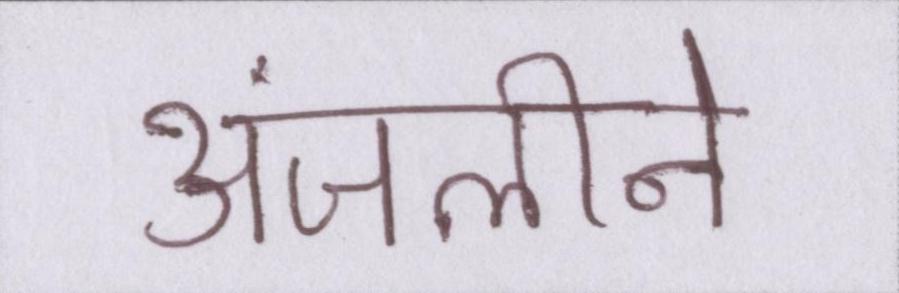 अंजलीने